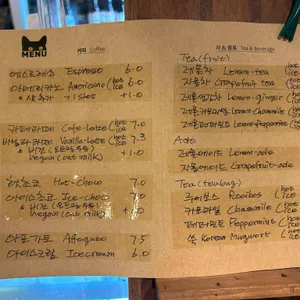 MENU
커피 Coffee
에스프레소 Espresso 6.0
아메리카노 Americano (hot ice 6.0
* 샷추가 +1 shot +1.0
카페라떼 Cafe-Latte (hot ice 7.0
바닐라라떼 Vanilla-Latte (hot ice 7.3
* 비건 (오트밀크) +1.0
Vegan (oat milk)
핫초코 Hot-Choco 7.0
아이스초코 Ice-Choco 7.0
* 비건 (오트밀크) 1.0
Vegan (oat milk)
아포가토 Affogato 7.5
아이스크림 Icecream 6.0
차 & 음료 Tea & Beverage
Tea (fruit)
레몬차 Lemon-tea (hot ice
자몽차 Grapefruit tea (hot ice
레몬생강차 Lemon-ginger (hot ice
레몬캐모마일 Lemon-Chamomile (
레몬페퍼민트 Lemon-Peppermint (
Ade
레몬에이드 Lemon-ade
자몽에이드 Grapefruit-ade
Tea (teabag)
루이보스 Rooibos (hot ice
캐모마일 Chamomile (hot ice
페퍼민트 Peppermint (hot ice
쑥 Korean Mugwort (